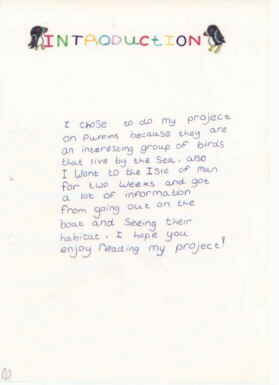 INTRODUCTION
I chose to do my project
on Puffins because they are
an interesting group of birds
that live by the Sea. also
I Went to the Isle of Man
for two weeks and got
a lot of information
from going out on the
boat and Seeing their
habitat. I hope you
enjoy Reading my project!